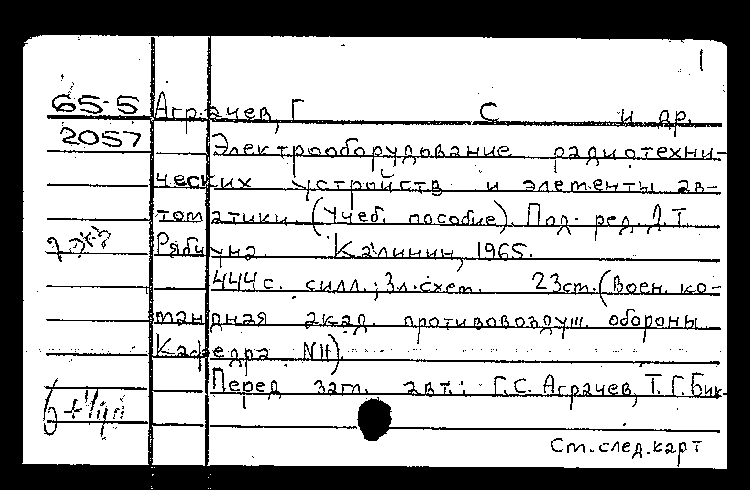 1
65-5 Аграчев, Г С и др.
2057 Электрооборудование радиотехни-
ческих устройств и элементы ав-
томатики. (Учеб. пособие). Под. ред. Д.Т.
Рябуна. Калинин, 1965.
444 с. силл.; 3л.схем. 23 ст. (Воен. ко-
мандная акад. противовоздуш. обороны
Кафедра N11).
Перед загл. авт.: Г.С. Аграчев, Т.Г. Бик-
Ст.след.карт